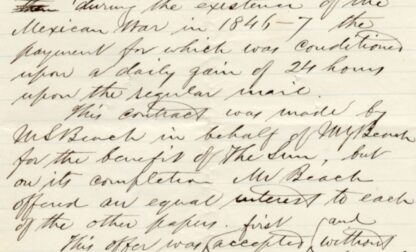 during the existence of the
Mexican War in 1846-7 the
payment for which was conditioned
upon a daily gain of 24 hours
upon the regular mail.
This contract was made by
M S Beach in behalf of M Y Beach
for the benefit of The Sun, but
on its completion Mr Beach
offered an equal interest to each
of the other papers. first and
This offer was accepted (without